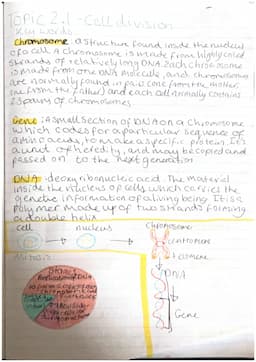 TOPIC 2.1 - Cell division
Key words
Chromosome : a structure found inside the nucleus
of a cell. A chromosome is made from highly coiled
strands of relatively long DNA. Each chromosome
is made from one DNA molecule, and chromosomes
are normally found in pairs (one from the mother,
one from the father) and each cell normally contains
23 pairs of chromosomes.
Gene : A small section of DNA on a chromosome
which codes for a particular sequence of
amino acids, to make a specific protein. It's
a unit of heredity, and may be copied and
passed on to the next generation
DNA : deoxyribonucleic acid. The material
inside the nucleus of cells which carries the
genetic information of a living being. It is a
polymer made up of two strands forming
a double helix
cell nucleus Chromosome
centromere
telomere
Mitosis
DNA
Gene